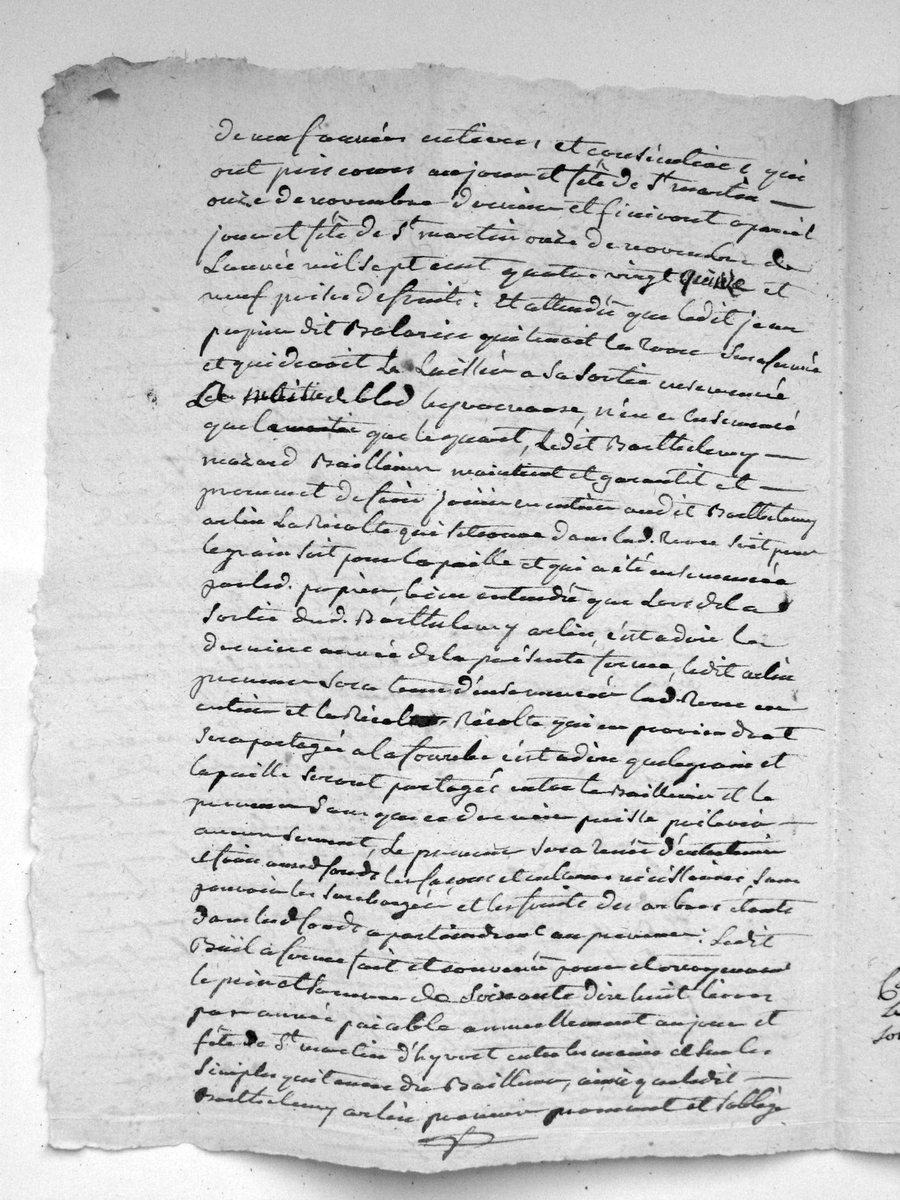 de neuf années entieres et consécutives qui
ont pris cours au jour et fête de St martin —
onze de novembre dernier et finiront a pareil
jour et fête de St martin onze de novembre de
Lannée mil sept cent quatre vingt quinze et
neuf prises de fruits: Et attendû que ledit jean
papier dit qui tenoit la Terre
et qui devoit La Laisser a sa sortie ensemencée
de bled n'en a ensemencé
que la moitie que le quart, Ledit Barthelemy —
mazard Bailleur maintient et garantit et —
promet de faire jouir en entier audit Barthelemy
arlin La Récolte qui se trouve dans lad. Terre soit pour
le grain soit pour la paille et qui a été ensemencée
par led. papier, bien entendû que Lors de la
sortie dud. Barthelemy arlin, c'est a dire la
derniere année de la présente ferme, ledit arlin
preneur sera tenu d'ensemencer lad. Terre en
entier et la Récolte qui en proviendrat
sera partagée a la Gourbe c'est a dire que le grain et
la paille seront partagés entre le Bailleur et le
preneur sans que ce dernier puisse prélever —
aucune semence, Le preneur sera tenû d'entretenir
et faire auxd. fonds les façons et cultures nécéssaires sans
pouvoir les surcharger et les fruits des arbres étants
dans lesd. fonds apartiendront au preneur: Ledit
Bail a ferme fait et convenû pour et moyennant
le prix et somme de soixante dix huit livres
par année païable annuellement au jour et
fête de St martin d'hyvert entre les mains et sur les
simples quittances du Bailleur, ainsi que ledit —
Barthelemy arlin preneur promet et s'oblige